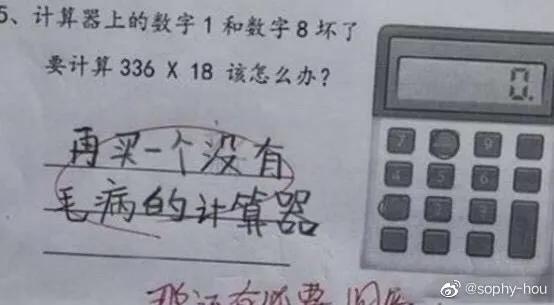 5、计算器上的数字1和数字8坏了
要计算336 X 18 该怎么办?
再买一个没有
毛病的计算器
0.
7
9
4
5
6
2
3
@sophy-hou